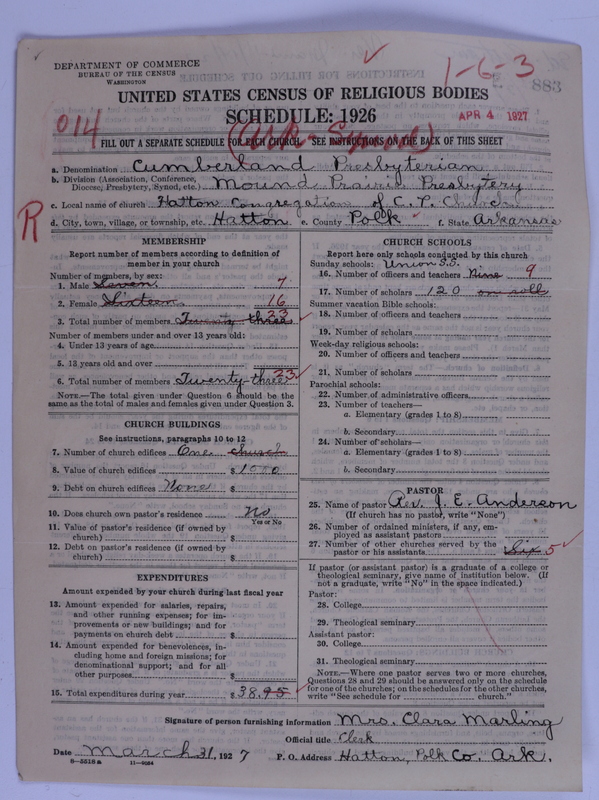 DEPARTMENT OF COMMERCE
BUREAU OF THE CENSUS
WASHINGTON
1-6-3
883
UNITED STATES CENSUS OF RELIGIOUS BODIES
SCHEDULE: 1926
APR 4 1927
014
(Ark-Synod)
FILL OUT A SEPARATE SCHEDULE FOR EACH CHURCH. SEE INSTRUCTIONS ON THE BACK OF THIS SHEET
a. Denomination Cumberland Presbyterian
b. Division (Association, Conference, Diocese, Presbytery, Synod, etc.) Mound Prairie Presbytery
c. Local name of church Hatton Congregation of C. P. Church
R
d. City, town, village, or township, etc. Hatton e. County Polk f. State Arkansas
MEMBERSHIP
Report number of members according to definition of
member in your church
Number of members, by sex:
1. Male Seven 7
2. Female Sixteen 16
3. Total number of members Twenty three 23
Number of members under and over 13 years old:
4. Under 13 years of age
5. 13 years old and over
6. Total number of members Twenty-three 23
NOTE.—The total given under Question 6 should be the
same as the total of males and females given under Question 3.
CHURCH BUILDINGS
See instructions, paragraphs 10 to 12
7. Number of church edifices One church
8. Value of church edifices $1000
9. Debt on church edifices None $
10. Does church own pastor's residence No
Yes or No
11. Value of pastor's residence (if owned by
church) $
12. Debt on pastor's residence (if owned by
church) $
EXPENDITURES
Amount expended by your church during last fiscal year
13. Amount expended for salaries, repairs,
and other running expenses; for im-
provements or new buildings; and for
payments on church debt $
14. Amount expended for benevolences, in-
cluding home and foreign missions; for
denominational support; and for all
other purposes $
15. Total expenditures during year $38.95
CHURCH SCHOOLS
Report here only schools conducted by this church
Sunday schools: Union S.S.
16. Number of officers and teachers Nine 9
17. Number of scholars 120 on roll
Summer vacation Bible schools:
18. Number of officers and teachers
19. Number of scholars
Week-day religious schools:
20. Number of officers and teachers
21. Number of scholars
Parochial schools:
22. Number of administrative officers
23. Number of teachers—
a. Elementary (grades 1 to 8)
b. Secondary
24. Number of scholars—
a. Elementary (grades 1 to 8)
b. Secondary
PASTOR
25. Name of pastor Rev. J. E. Anderson
(If church has no pastor, write "None")
26. Number of ordained ministers, if any, em-
ployed as assistant pastors
27. Number of other churches served by the
pastor or his assistants Six 5
If pastor (or assistant pastor) is a graduate of a college or
theological seminary, give name of institution below. (If
not a graduate, write "No" in the space indicated.)
Pastor:
28. College
29. Theological seminary
Assistant pastor:
30. College
31. Theological seminary
NOTE.—Where one pastor serves two or more churches,
Questions 28 and 29 should be answered only on the schedule
for one of the churches; on the schedules for the other churches,
write "See schedule for church."
Signature of person furnishing information Mrs. Clara Marling
Official title Clerk
Date March 31, 1927 P. O. Address Hatton, Polk Co. Ark.
8-5518a 11-9084